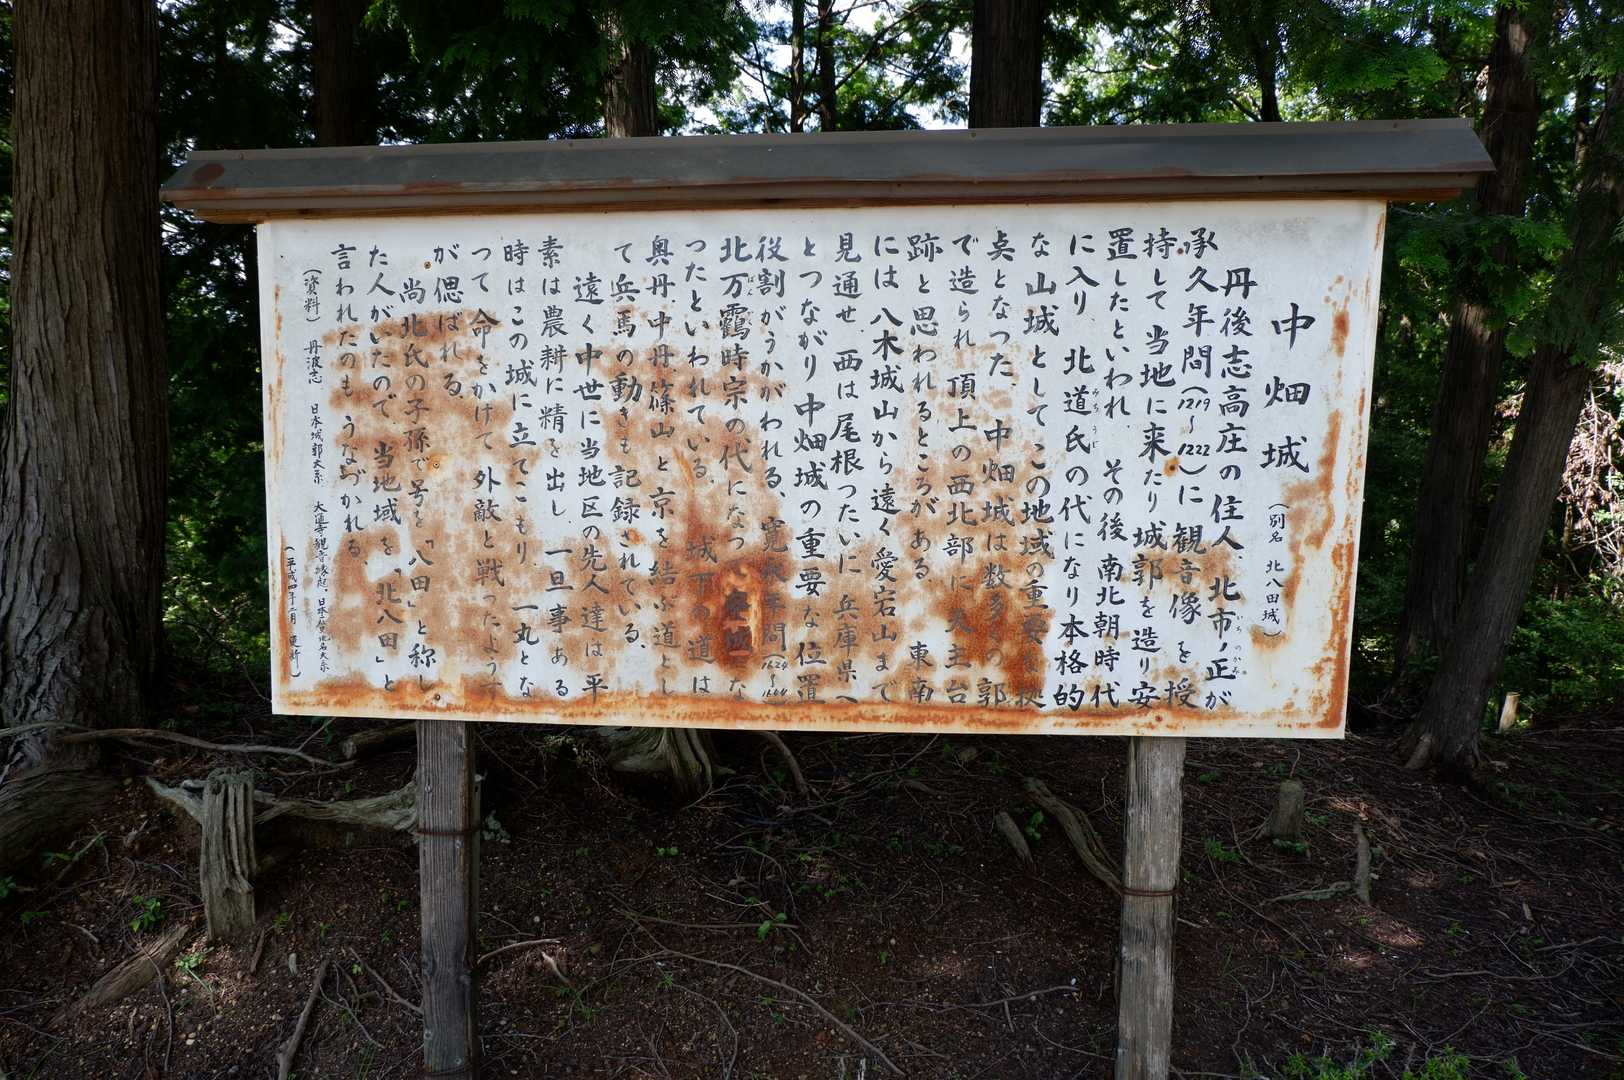 中畑城
(別名 北八田城)
丹後志高庄の住人、北市ノ正が
いちのかみ
承久年間(1219〜1222)に観音像を授
持して当地に来たり城郭を造り安
置したといわれ その後南北朝時代
に入り 北道氏の代になり本格的
みちうじ
な山城としてこの地域の重要な拠
点となった、中畑城は数多くの郭
で造られ頂上の西北部に天主台
跡と思われるところがある 東南
には八木城山から遠く愛宕山まで
見通せ 西は尾根つたいに兵庫県へ
とつながり中畑城の重要な位置
役割がうかがわれる、寛永年間(1624〜1644)
北万鶴時宗の代になって
ばん
な
ったといわれている 城下の道は
奥丹、中丹、篠山と京を結ぶ道とし
て兵馬の動きも記録されている、
遠く中世に当地区の先人達は平
素は農耕に精を出し 一旦事ある
時はこの城に立てこもり 一丸とな
って命をかけて外敵と戦ったようす
が偲ばれる
尚北氏の子孫で号を「八田」と称し
た人がいたので 当地域を「北八田」と
言われたのもうなづかれる
(資料) 丹波志 日本城郭大系
(平成四年二月 更新)